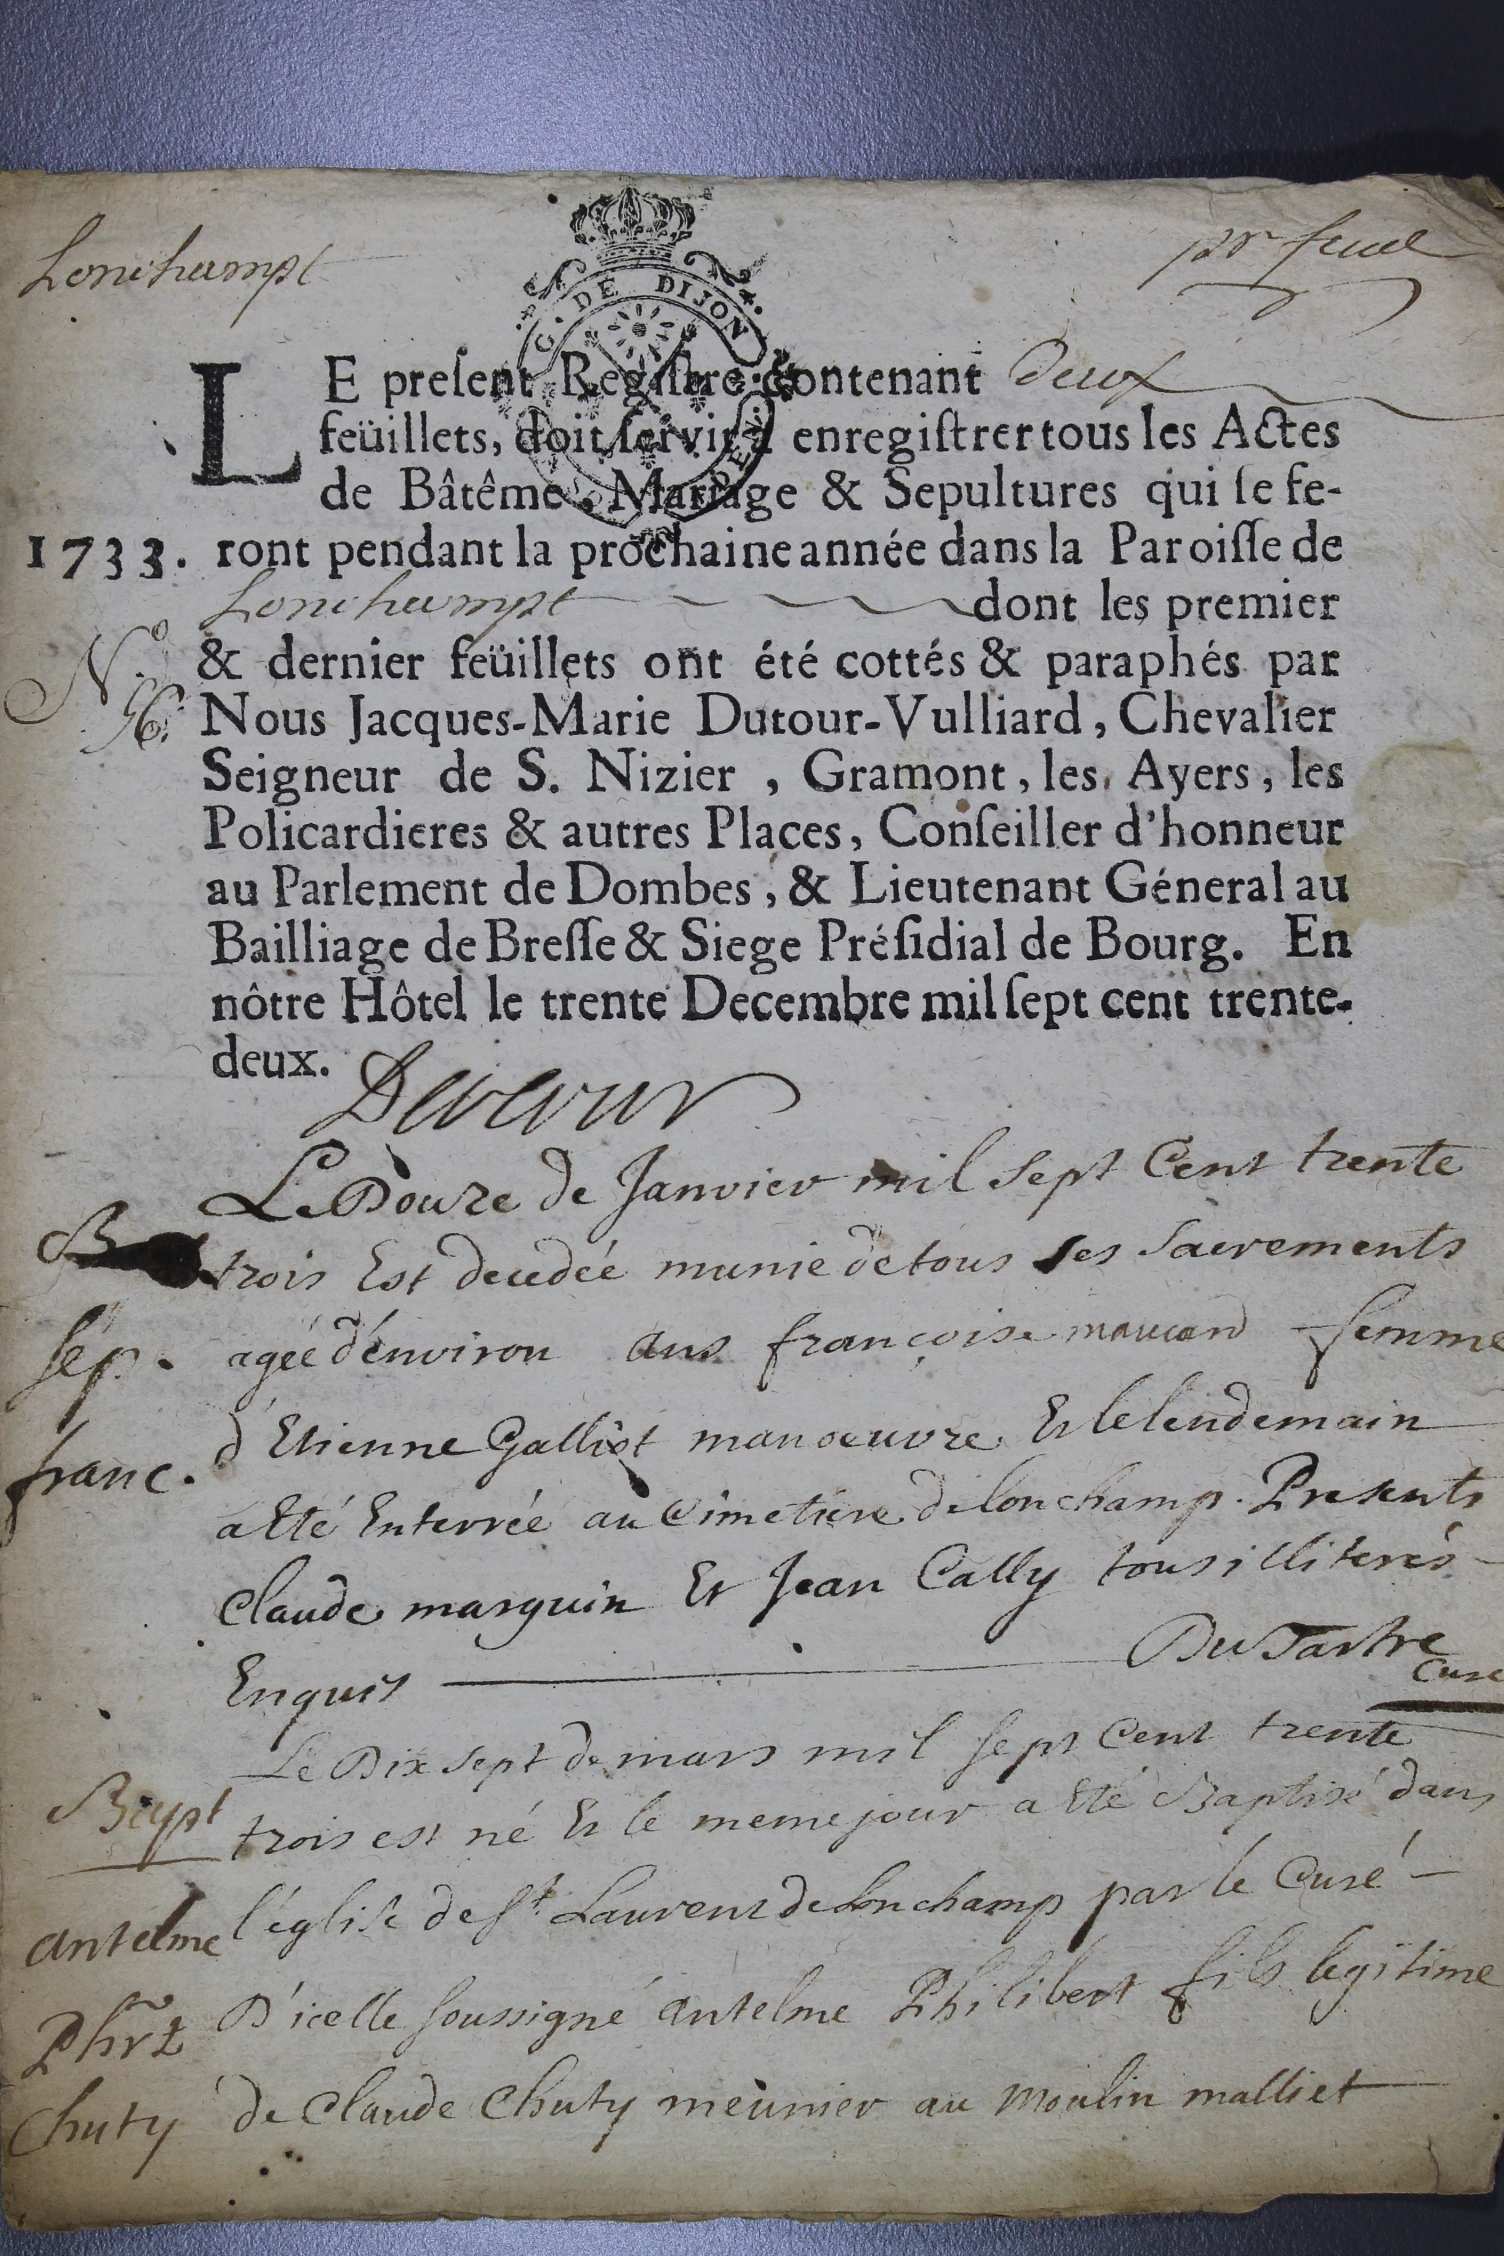 Lonchampt
pr feuel
G. DE DIJON
LE present Registre contenant deux
feüillets, doit servir à enregistrer tous les Actes
de Bâtême, Mariage & Sepultures qui se fe-
1733. ront pendant la prochaine année dans la Paroisse de
Lonchampt dont les premier
No & dernier feüillets ont été cottés & paraphés par
Nous Jacques-Marie Dutour-Vulliard, Chevalier
Seigneur de S. Nizier, Gramont, les Ayers, les
Policardieres & autres Places, Conseiller d'honneur
au Parlement de Dombes, & Lieutenant Géneral au
Bailliage de Bresse & Siege Présidial de Bourg. En
nôtre Hôtel le trente Decembre mil sept cent trente-
deux.
Le Douze de Janvier mil sept Cent trente
trois Est decedée munie de tous ses Sacrements
Sep. agée d'environ ans françoise maucand femme
franc. d'Etienne Galliot manoeuvre Et le lendemain
a Eté Enterrée au Cimetiere de lonchamp. Presents
Claude marguin Et Jean Cally tous illiterés
Enquis Du Tartre
Curé
Le Dix sept de mars mil sept Cent trente
Bapt trois est né Et le meme jour a Eté Baptisé dans
antelme l'église de St. Laurent de Lonchamp par le Curé
Phrt D'icelle soussigné antelme Philibert fils legitime
Chuty de Claude Chuty meunier au moulin malliet